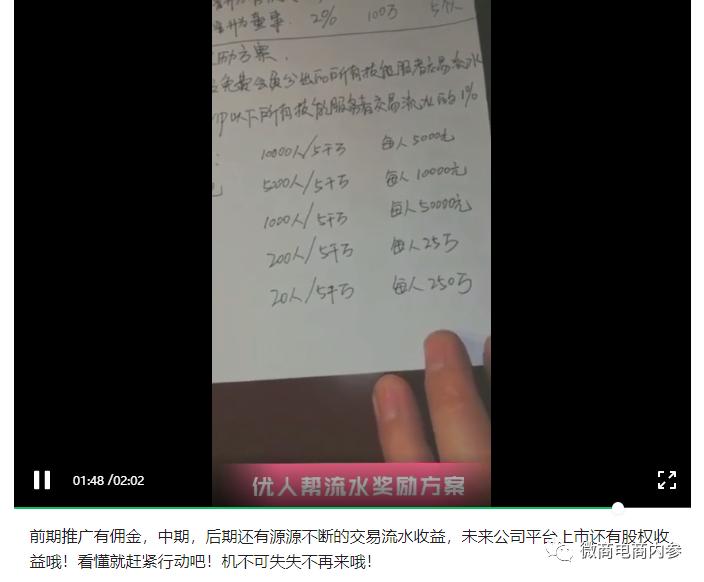 董事. 2% 100万 5个人
励方案.
免费会员分出的所有技能服务者交易流水
以下所有技能服务者交易流水的1%
10000人/5千万 每人5000元
5000人/5千万 每人10000元
1000人/5千万 每人50000元
200人/5千万 每人25万
20人/5千万 每人250万
01:48 /02:02
优人帮流水奖励方案
前期推广有佣金,中期,后期还有源源不断的交易流水收益,未来公司平台上市还有股权收
益哦!看懂就赶紧行动吧!机不可失失不再来哦!
微商电商内参